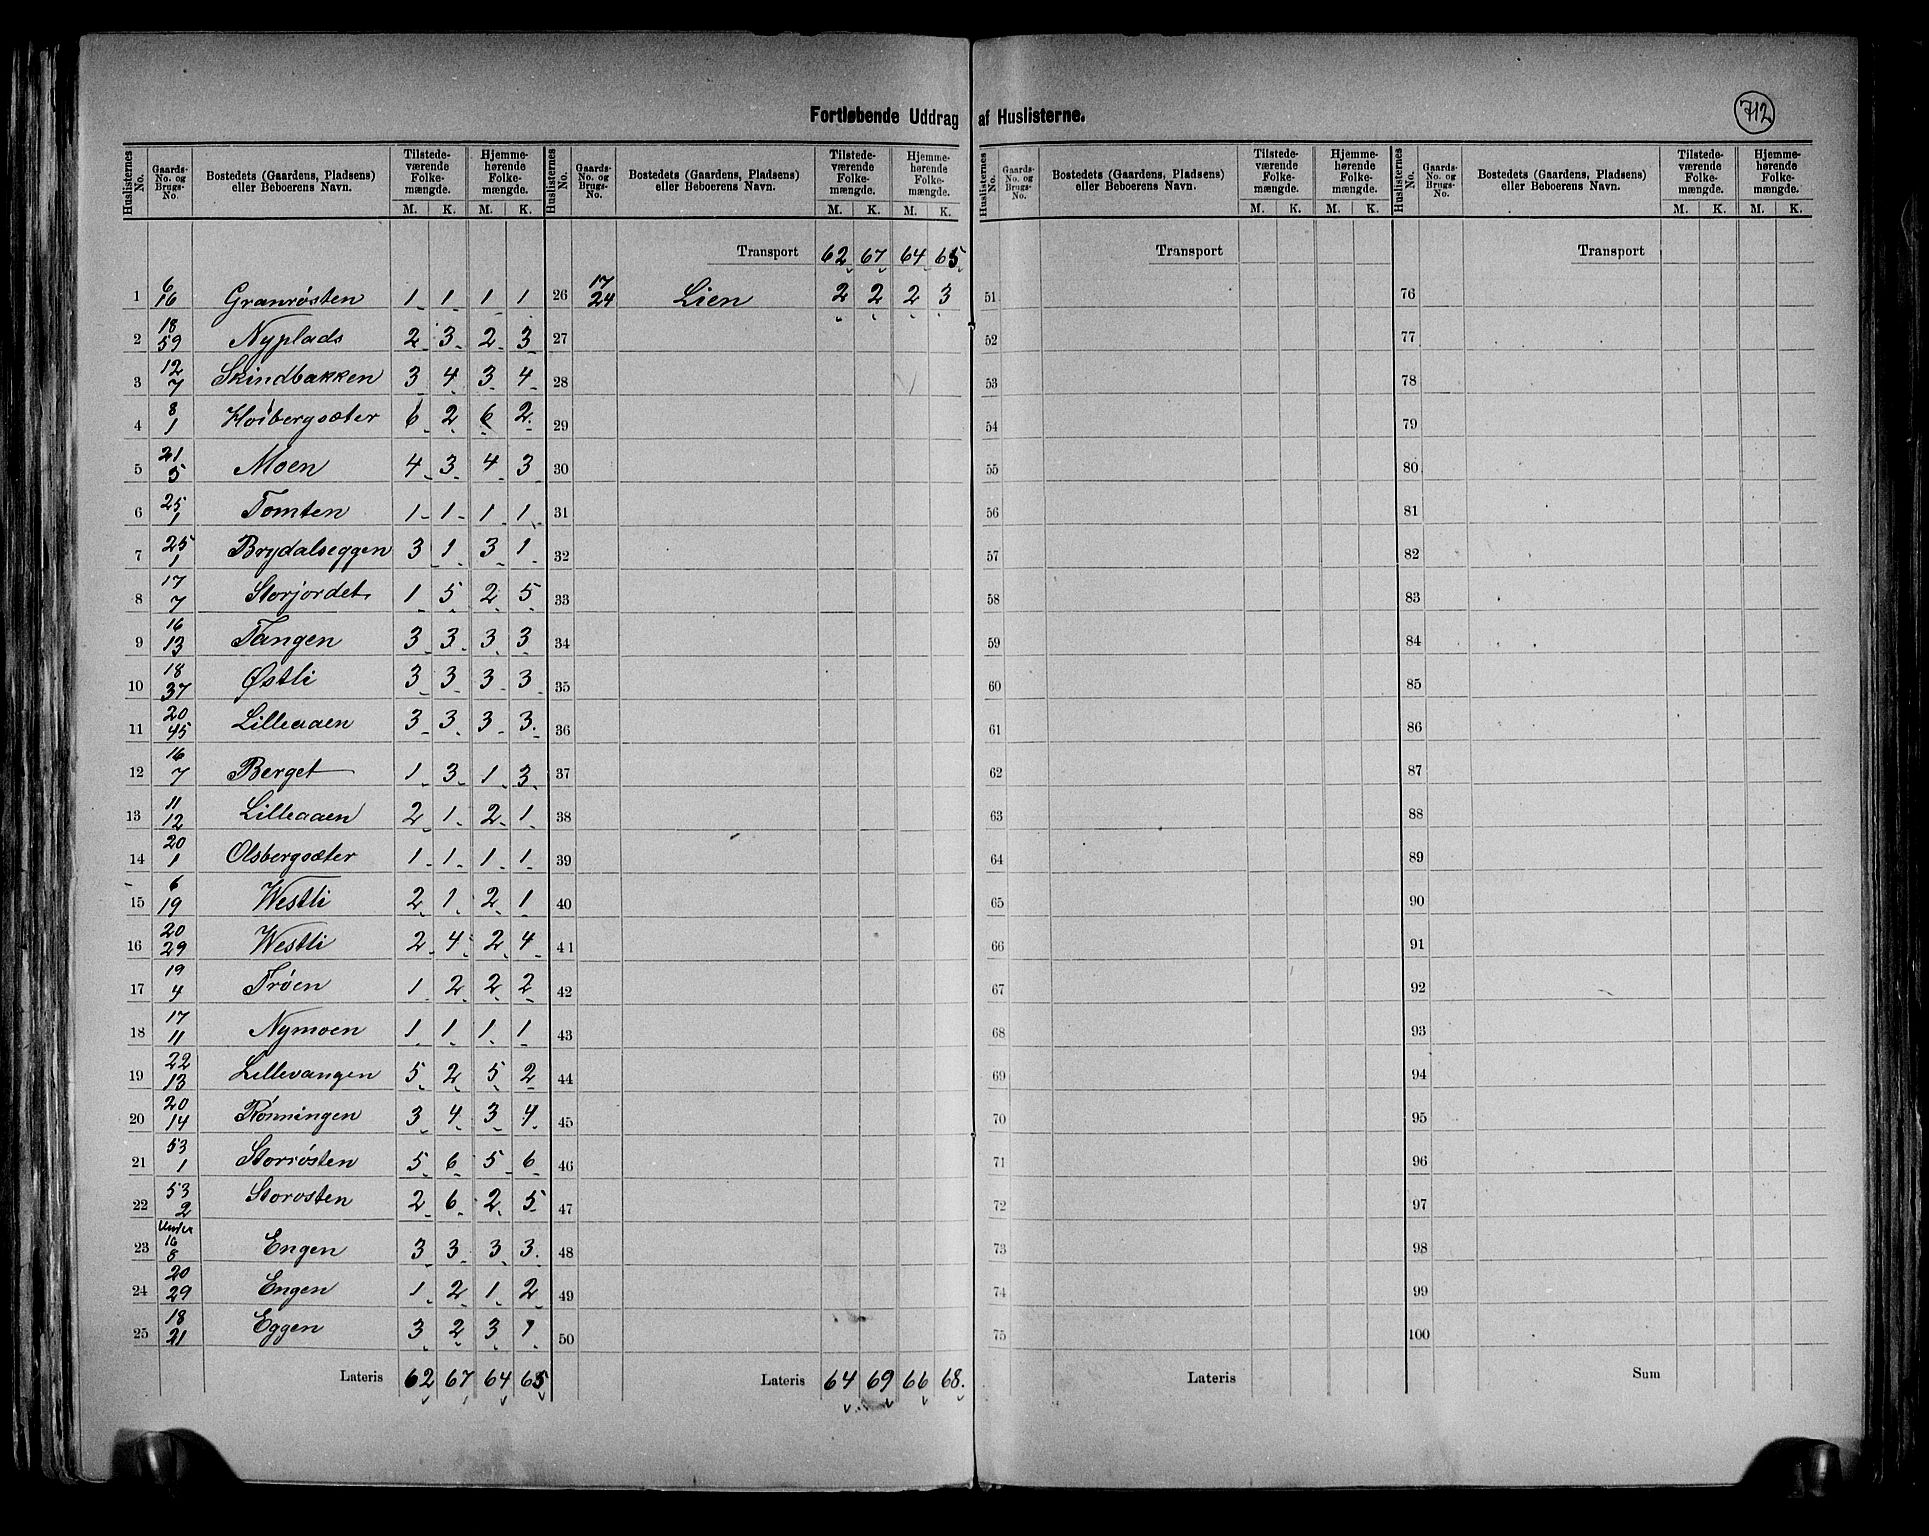 712
Fortløbende Uddrag af Huslisterne.
Huslisternes No. | Gaards-No. og Brugs-No. | Bostedets (Gaardens, Pladsens) eller Beboerens Navn. | Tilstedeværende Folkemængde. M. K. | Hjemmehørende Folkemængde. M. K.
Huslisternes No. | Gaards-No. og Brugs-No. | Bostedets (Gaardens, Pladsens) eller Beboerens Navn. | Tilstedeværende Folkemængde. M. K. | Hjemmehørende Folkemængde. M. K.
Huslisternes No. | Gaards-No. og Brugs-No. | Bostedets (Gaardens, Pladsens) eller Beboerens Navn. | Tilstedeværende Folkemængde. M. K. | Hjemmehørende Folkemængde. M. K.
Huslisternes No. | Gaards-No. og Brugs-No. | Bostedets (Gaardens, Pladsens) eller Beboerens Navn. | Tilstedeværende Folkemængde. M. K. | Hjemmehørende Folkemængde. M. K.
Transport 62 67 64 65 Transport Transport
1 6/16 Granrøsten 1 1 1 1 26 17/24 Lien 2 2 2 3 51 76
2 18/59 Nyplads 2 3 2 3 27 52 77
3 12/7 Skindbakken 3 4 3 4 28 53 78
4 8/1 Høibergsæter 6 2 6 2 29 54 79
5 21/5 Moen 4 3 4 3 30 55 80
6 25/1 Tomten 1 1 1 1 31 56 81
7 25/1 Brydalseggen 3 1 3 1 32 57 82
8 17/7 Storjordet 1 5 2 5 33 58 83
9 16/13 Tangen 3 3 3 3 34 59 84
10 18/37 Østli 3 3 3 3 35 60 85
11 20/45 Lilleaaen 3 3 3 3 36 61 86
12 16/7 Berget 1 3 1 3 37 62 87
13 11/12 Lilleaaen 2 1 2 1 38 63 88
14 20/1 Olsbergsæter 1 1 1 1 39 64 89
15 6/19 Westli 2 1 2 1 40 65 90
16 20/29 Westli 2 4 2 4 41 66 91
17 19/4 Trøen 1 2 2 2 42 67 92
18 17/11 Nymoen 1 1 1 1 43 68 93
19 22/13 Lillevangen 5 2 5 2 44 69 94
20 20/14 Rønningen 3 4 3 4 45 70 95
21 53/1 Storrøsten 5 6 5 6 46 71 96
22 53/2 Storøsten 2 6 2 5 47 72 97
23 Under 16/8 Engen 3 3 3 3 48 73 98
24 20/29 Engen 1 2 1 2 49 74 99
25 18/21 Eggen 3 2 3 1 50 75 100
Lateris 62 67 64 65 Lateris 64 69 66 68 Lateris Sum